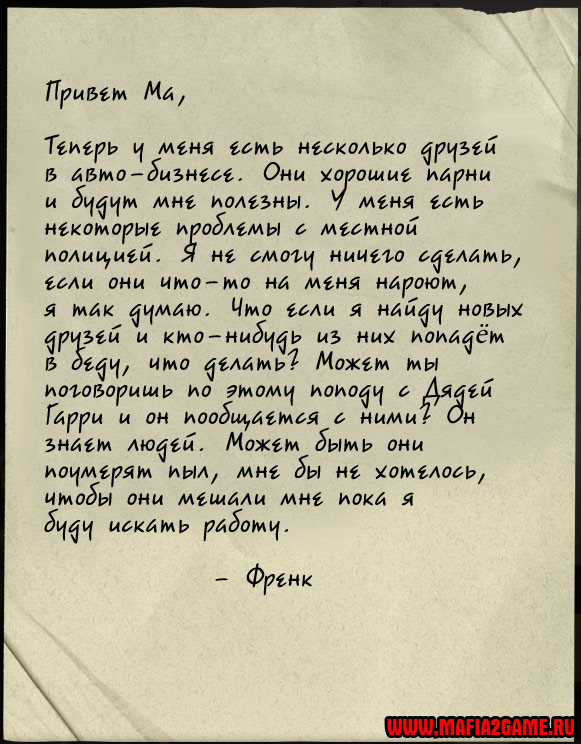 Привет Ма,
Теперь у меня есть несколько друзей
в авто-бизнесе. Они хорошие парни
и будут мне полезны. У меня есть
некоторые проблемы с местной
полицией. Я не смогу ничего сделать,
если они что-то на меня нароют,
я так думаю. Что если я найду новых
друзей и кто-нибудь из них попадёт
в беду, что делать? Может ты
поговоришь по этому поподу с Дядей
Гарри и он пообщается с ними? Он
знает людей. Может быть они
поумерят пыл, мне бы не хотелось,
чтобы они мешали мне пока я
буду искать работу.
- Френк
WWW.MAFIA2GAME.RU